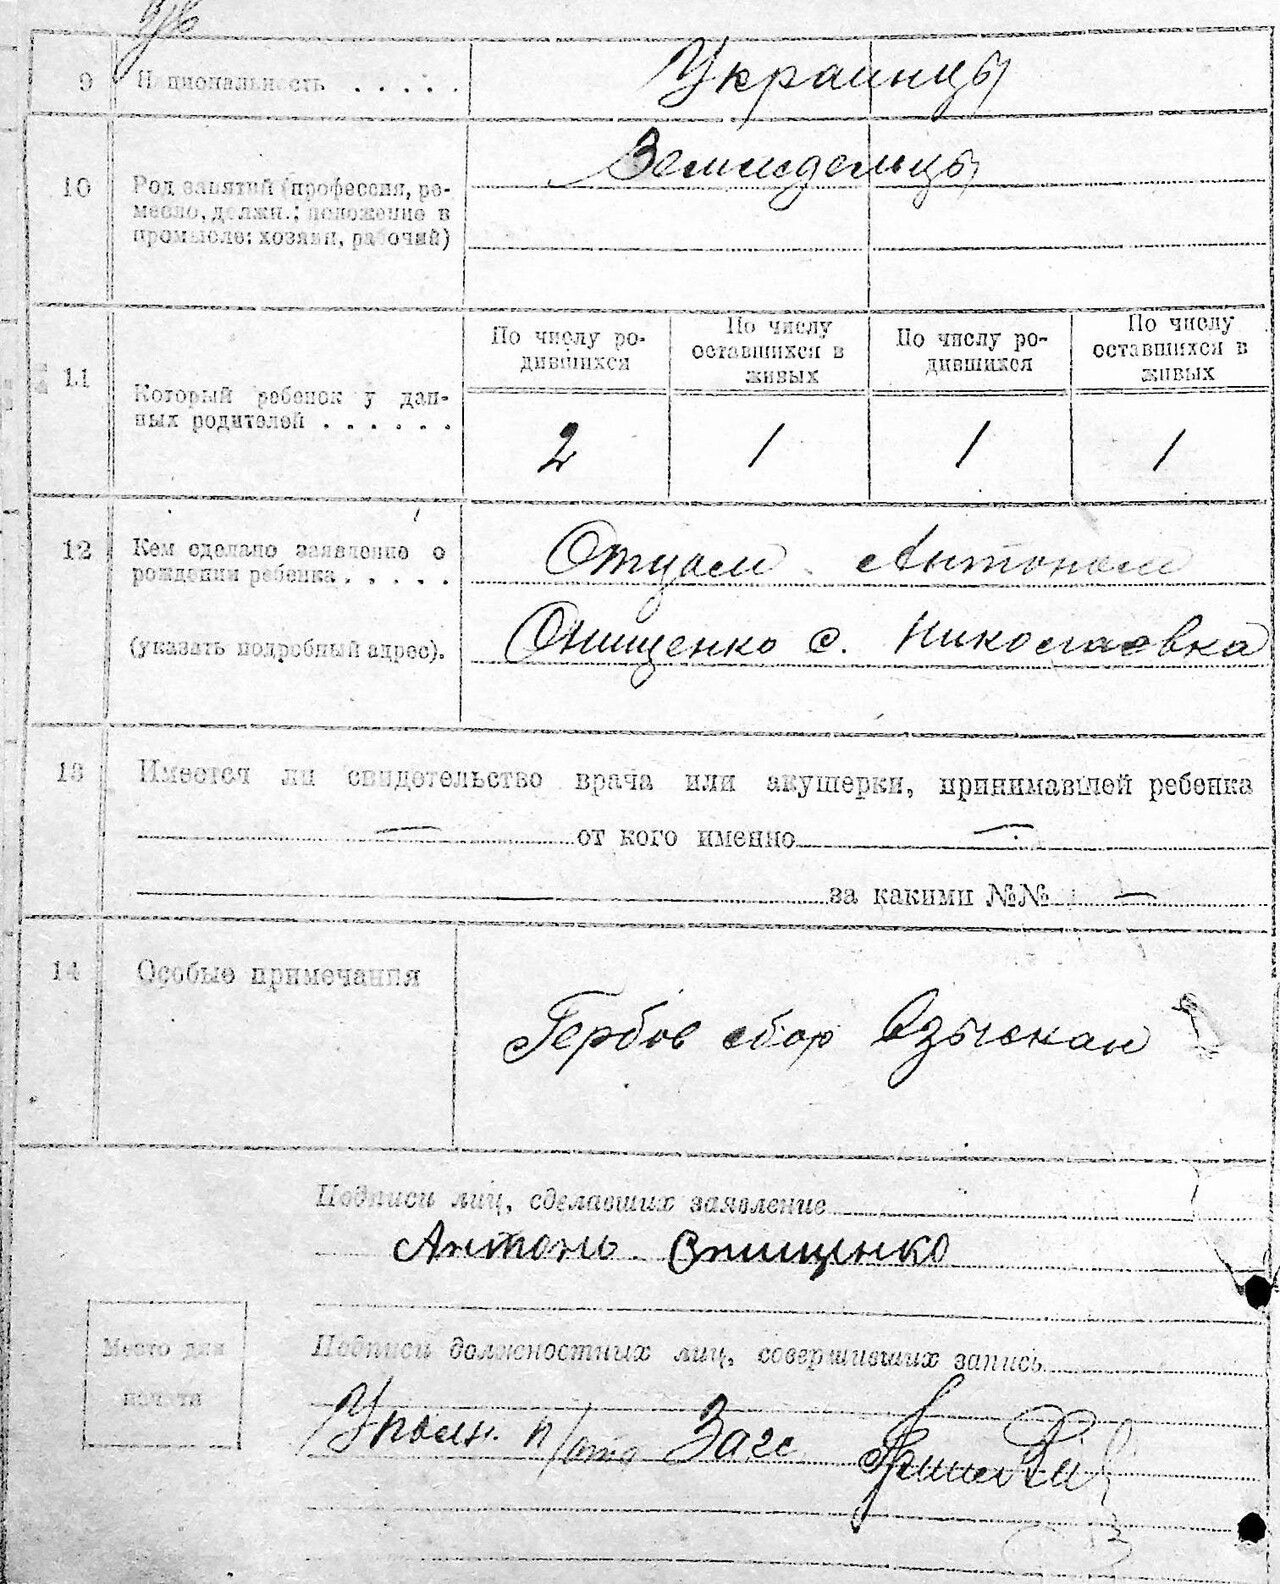 9 Национальность . . . . . Украинцы
10 Род занятий (профессия, ре-
месло, должн.; положение в
промысле: хозяин, рабочий)
Земледельцы
11 Который ребенок у дан-
ных родителей . . . . . .
По числу ро-
дившихся
По числу
оставшихся в
живых
По числу ро-
дившихся
По числу
оставшихся в
живых
2 1 1 1
12 Кем сделано заявление о
рождении ребенка . . . . .
(указать подробный адрес).
Отцом Антоном
Онищенко с. Николаевка
13 Имеется ли свидетельство врача или акушерки, принимавшей ребенка
— от кого именно —
за какими №№ —
14 Особые примечания
Гербов сбор взыскан
Подписи лиц, сделавших заявление
Антонъ Онищенко
Место для
печати
Подписи должностных лиц, совершивших запись
Уполн. п/отд Загс